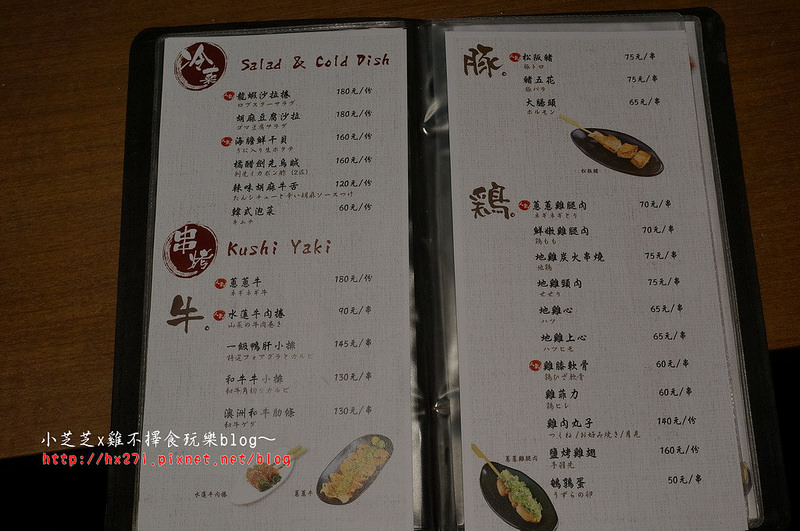 冷菜 Salad & Cold Dish
龍蝦沙拉捲 180元/份
ロブスターサラダ
胡麻豆腐沙拉 180元/份
ゴマ豆腐サラダ
海膽鮮干貝 160元/份
うに入り生ホタテ
橘醋劍先烏賊 160元/份
剣先イカポン酢 (2匹)
辣味胡麻牛舌 120元/份
たんシチューと辛い胡麻ソースつけ
韓式泡菜 60元/份
キムチ
串烤 Kushi Yaki
牛。
蔥蔥牛 180元/份
ネギネギ牛
水蓮牛肉捲 90元/串
山菜の牛肉巻き
一級鴨肝小排 145元/串
特選フォアグラとカルビ
和牛牛小排 130元/串
和牛角切りカルビ
澳洲和牛肋條 130元/串
和牛ゲタ
水蓮牛肉捲
蔥蔥牛
豚。
松阪豬 75元/串
豚トロ
豬五花 75元/串
豚バラ
大腸頭 65元/串
ホルモン
松阪豬
鶏。
蔥蔥雞腿肉 70元/串
ネギネギとり
鮮嫩雞腿肉 70元/串
鶏もも
地雞炭火串燒 75元/串
地鶏
地雞頸肉 75元/串
せせり
地雞心 65元/串
ハツ
地雞上心 65元/串
ハツヒモ
雞膝軟骨 60元/串
鶏ひざ軟骨
雞菲力 60元/串
鶏ヒレ
雞肉丸子 140元/份
つくね/お好み焼き/月見
鹽烤雞翅 160元/份
手羽先
鵪鶉蛋 50元/串
うずらの卵
蔥蔥雞腿肉
小芝芝x雞不擇食玩樂blog~
http://hx271.pixnet.net/blog